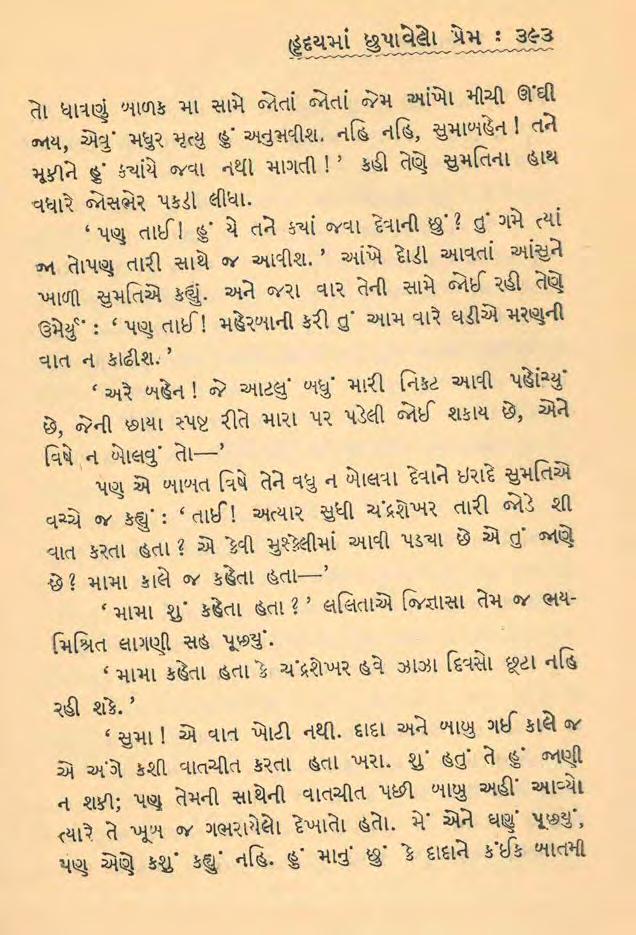 હૃદયમાં છુપાવેલો પ્રેમ : ૩૯૩
તો ધાવણું બાળક મા સામે જોતાં જોતાં જેમ આંખો મીચી ઊંઘી
જાય, એવું મધુર મૃત્યુ હું અનુભવીશ. નહિ નહિ, સુમાબહેન ! તને
મૂકીને હું ક્યાંયે જવા નથી માગતી ! ’ કહી તેણે સુમતિના હાથ
વધારે જોસભેર પકડી લીધા.
‘ પણ તાઈ ! હું યે તને ક્યાં જવા દેવાની છું ? તું ગમે ત્યાં
જા તોપણ તારી સાથે જ આવીશ. ’ આંખે દોડી આવતાં આંસુને
ખાળી સુમતિએ કહ્યું. અને જરા વાર તેની સામે જોઈ રહી તેણે
ઉમેર્યું : ‘ પણ તાઈ ! મહેરબાની કરી તું આમ વારે ઘડીએ મરણની
વાત ન કાઢીશ. ’
‘ અરે બહેન ! જે આટલું બધું મારી નિકટ આવી પહોંચ્યું
છે, જેની છાયા સ્પષ્ટ રીતે મારા પર પડેલી જોઈ શકાય છે, એને
વિષે ન બોલવું તો—’
પણ એ બાબત વિષે તેને વધુ ન બોલવા દેવાને ઇરાદે સુમતિએ
વચ્ચે જ કહ્યું : ‘ તાઈ ! અત્યાર સુધી ચંદ્રશેખર તારી જોડે શી
વાત કરતા હતા ? એ કેવી મુશ્કેલીમાં આવી પડ્યા છે એ તું જાણે
છે ? મામા કાલે જ કહેતા હતા—’
‘ મામા શું કહેતા હતા ? ’ લલિતાએ જિજ્ઞાસા તેમ જ ભય-
મિશ્રિત લાગણી સહ પૂછ્યું.
‘ મામા કહેતા હતા કે ચંદ્રશેખર હવે ઝાઝા દિવસો છૂટા નહિ
રહી શકે. ’
‘ સુમા ! એ વાત ખોટી નથી. દાદા અને બાબુ ગઈ કાલે જ
એ અંગે કશી વાતચીત કરતા હતા ખરા. શું હતું તે હું જાણી
ન શકી; પણ તેમની સાથેની વાતચીત પછી બાબુ અહીં આવ્યો
ત્યારે તે ખૂબ જ ગભરાયેલો દેખાતો હતો. મેં એને ઘણું પૂછ્યું,
પણ એણે કશું કહ્યું નહિ. હું માનું છું કે દાદાને કંઈક બાતમી